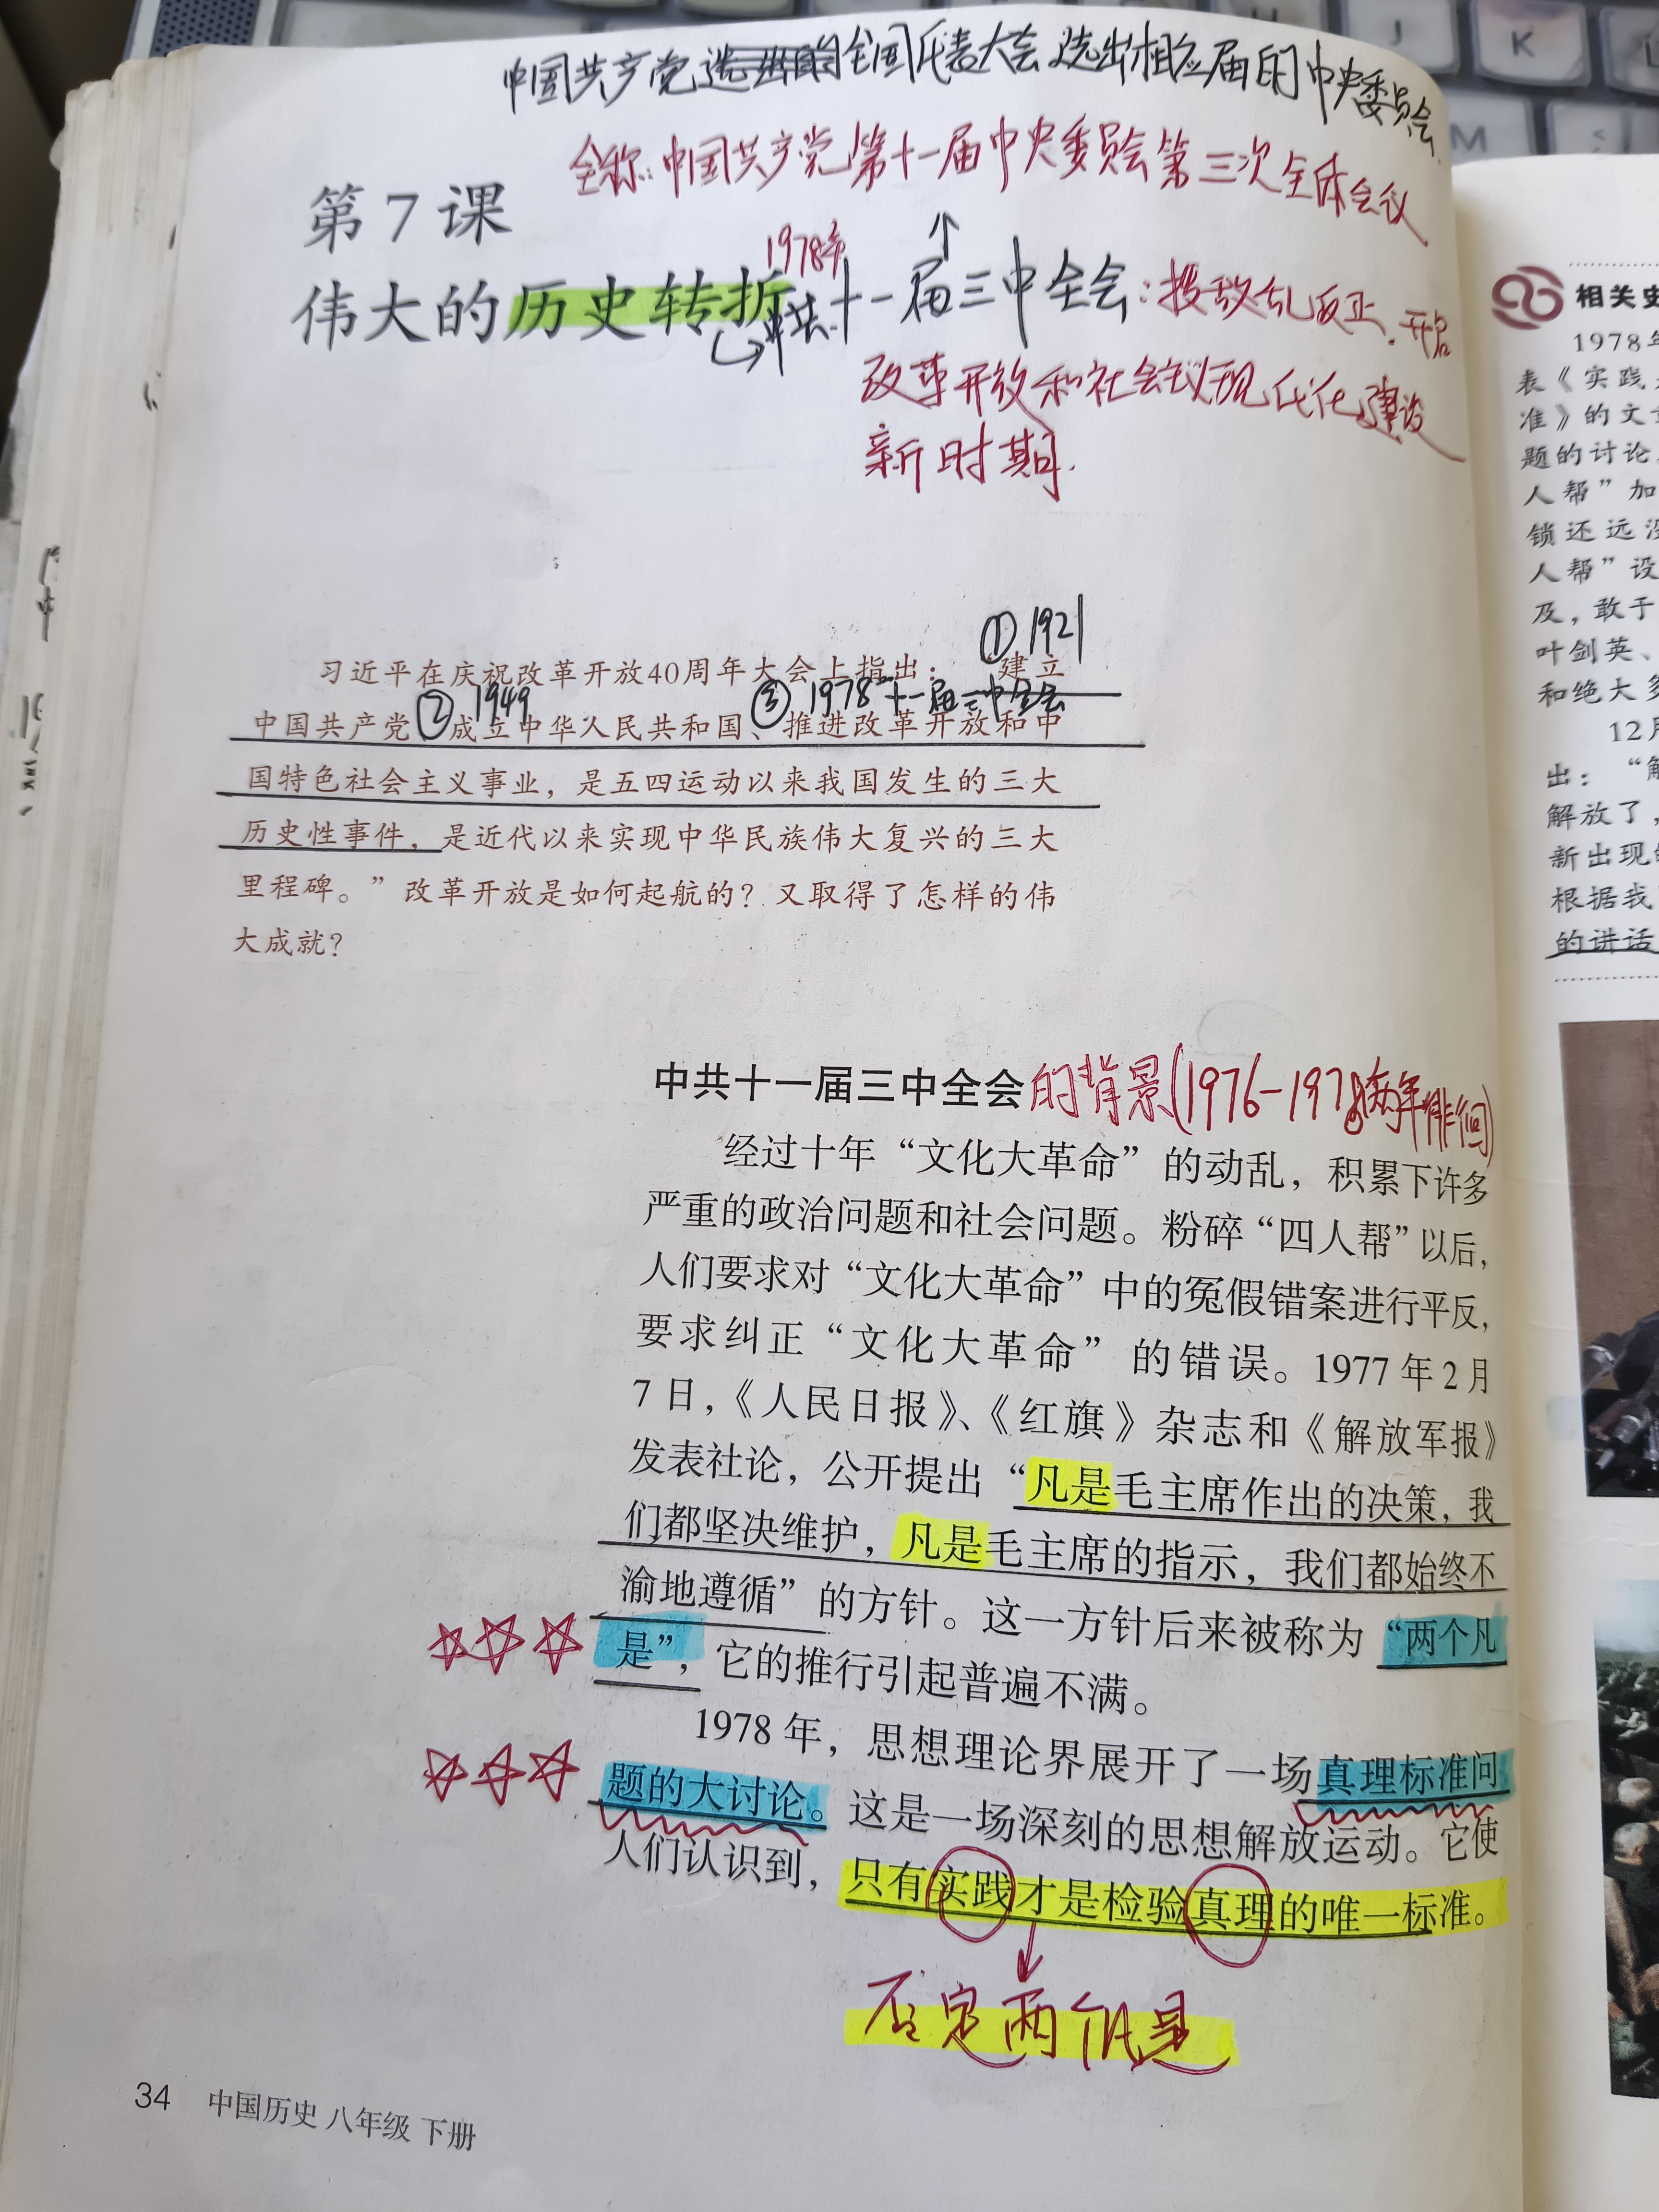 中国共产党全国代表大会选出相应届的中央委员会.
全称:中国共产党第十一届中央委员会第三次全体会议
第7课
1978年
伟大的历史转折
中共十一届三中全会:拨乱反正.开启
改革开放和社会主义现代化建设
新时期.
①1921
习近平在庆祝改革开放40周年大会上指出：“建立
②1949
③1978 十一届三中全会
中国共产党、成立中华人民共和国、推进改革开放和中
国特色社会主义事业，是五四运动以来我国发生的三大
历史性事件，是近代以来实现中华民族伟大复兴的三大
里程碑。”改革开放是如何起航的？又取得了怎样的伟
大成就？
中共十一届三中全会的背景(1976-1978两年徘徊)
经过十年“文化大革命”的动乱，积累下许多
严重的政治问题和社会问题。粉碎“四人帮”以后，
人们要求对“文化大革命”中的冤假错案进行平反，
要求纠正“文化大革命”的错误。1977年2月
7日，《人民日报》、《红旗》杂志和《解放军报》
发表社论，公开提出“凡是毛主席作出的决策，我
们都坚决维护，凡是毛主席的指示，我们都始终不
渝地遵循”的方针。这一方针后来被称为“两个凡
是”，它的推行引起普遍不满。
1978年，思想理论界展开了一场真理标准问
题的大讨论。这是一场深刻的思想解放运动。它使
人们认识到，只有实践才是检验真理的唯一标准。
否定两个凡是
34 中国历史 八年级 下册
相关史
1978年
表《实践
准》的文
题的讨论
人帮”加
锁还远没
人帮”设
及，敢于
叶剑英、
和绝大多
12月
出：“解
解放了，
新出现的
根据我
的讲话